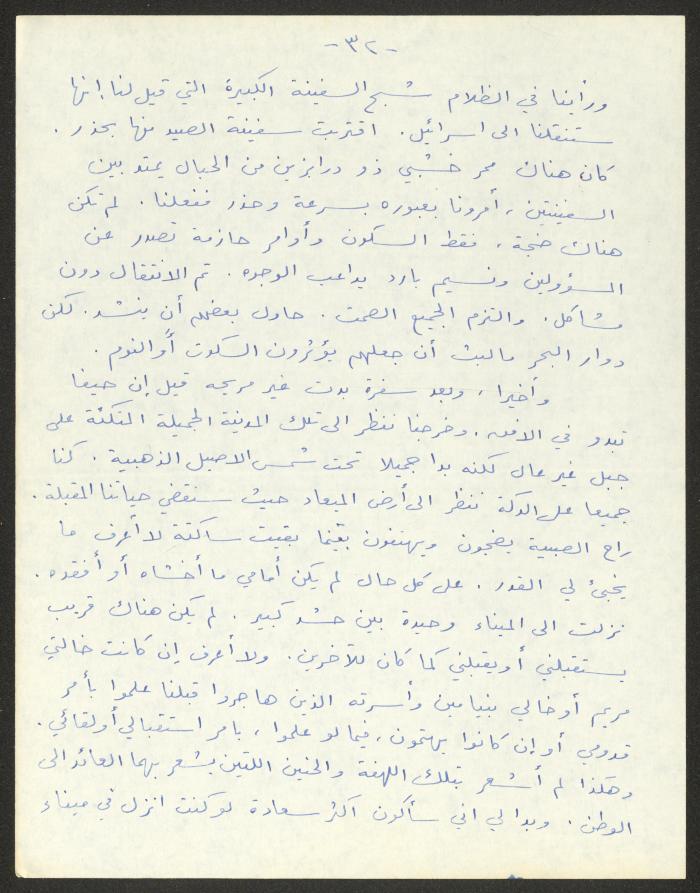 -٣٢-
ورأينا في الظلام شبح السفينة الكبيرة التي قيل لنا إنها
ستنقلنا الى اسرائيل. اقتربت سفينة الصيد منها بحذر.
كان هناك ممر خشبي ذو درابزين من الحبال يمتد بين
السفينتين، أمرونا بعبوره بسرعة وحذر ففعلنا. لم تكن
هناك ضجة، فقط السكون وأوامر حازمة تصدر عن
المسؤولين ونسيم بارد يداعب الوجوه. تم الانتقال دون
مشاكل. والتزم الجميع الصمت. حاول بعضهم أن ينشد. لكن
دوار البحر ما لبث أن جعلهم يؤثرون السكوت أو النوم.
وأخيرا، وبعد سفرة بدت غير مريحة قيل إن حيفا
تبدو في الافق. وخرجنا ننظر الى تلك المدينة الجميلة المتكئة على
جبل غير عال لكنه بدا جميلا تحت شمس الاصيل الذهبية. كنا
جميعا على الدكة ننظر الى أرض الميعاد حيث سنقضي حياتنا المقبلة.
راح الصبية يضجون ويهتفون بينما بقيت ساكتة لا أعرف ما
يخبئ لي القدر. على كل حال لم يكن أمامي ما أخشاه أو أفقده.
نزلت الى الميناء وحيدة بين حشد كبير. لم يكن هناك قريب
يستقبلني أو يقبلني كما كان للآخرين. ولا أعرف إن كانت خالتي
مريم أو خالي بنيامين وأسرته الذين هاجروا قبلنا علموا بأمر
قدومي أو إن كانوا يهتمون، فيما لو علموا، بامر استقبالي أو لقائي.
وهكذا لم أشعر بتلك اللهفة والحنين اللتين يشعر بهما العائد الى
الوطن. وبدا لي اني سأكون اكثر سعادة لو كنت انزل في ميناء